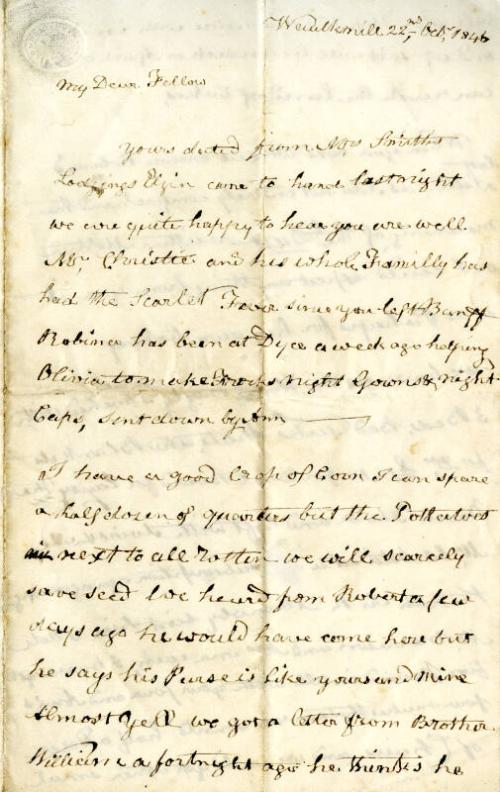 Waulkmill 22nd Octr, 1846
My Dear Fellow
Yours dated from Mrs Smiths
Lodgings Elgin came to hand last night
we are quite happy to hear you are well
Mr, Christie and his whole Familly has
had the Scarlet Fever since you left Banff
Robina has been at Dyce a week ago helping
Olivia to make Frocks night Gowns & night
Caps, sent down by Ann
I have a good Crop of Corn I can spare
a half dozen of quarters but the Pottatoes
next to all rotten we will scarcely
save seed we heard from Robert a few
days ago he would have come here but
he says his Purse is like yours and mine
Almost Yell we got a letter from Brother
William a fortnight ago he thinks he